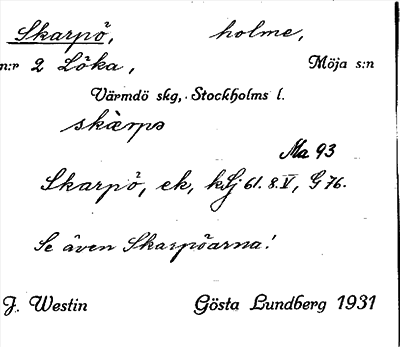 Skarpö, holme,
n:r 2 Löka, Möja s:n
Värmdö skg, Stockholms l.
skàrpə
Ma 93
Skarpö, ek, kSj 61. 8. V, G 76.
Se även Skarpöarna!
J. Westin Gösta Lundberg 1931